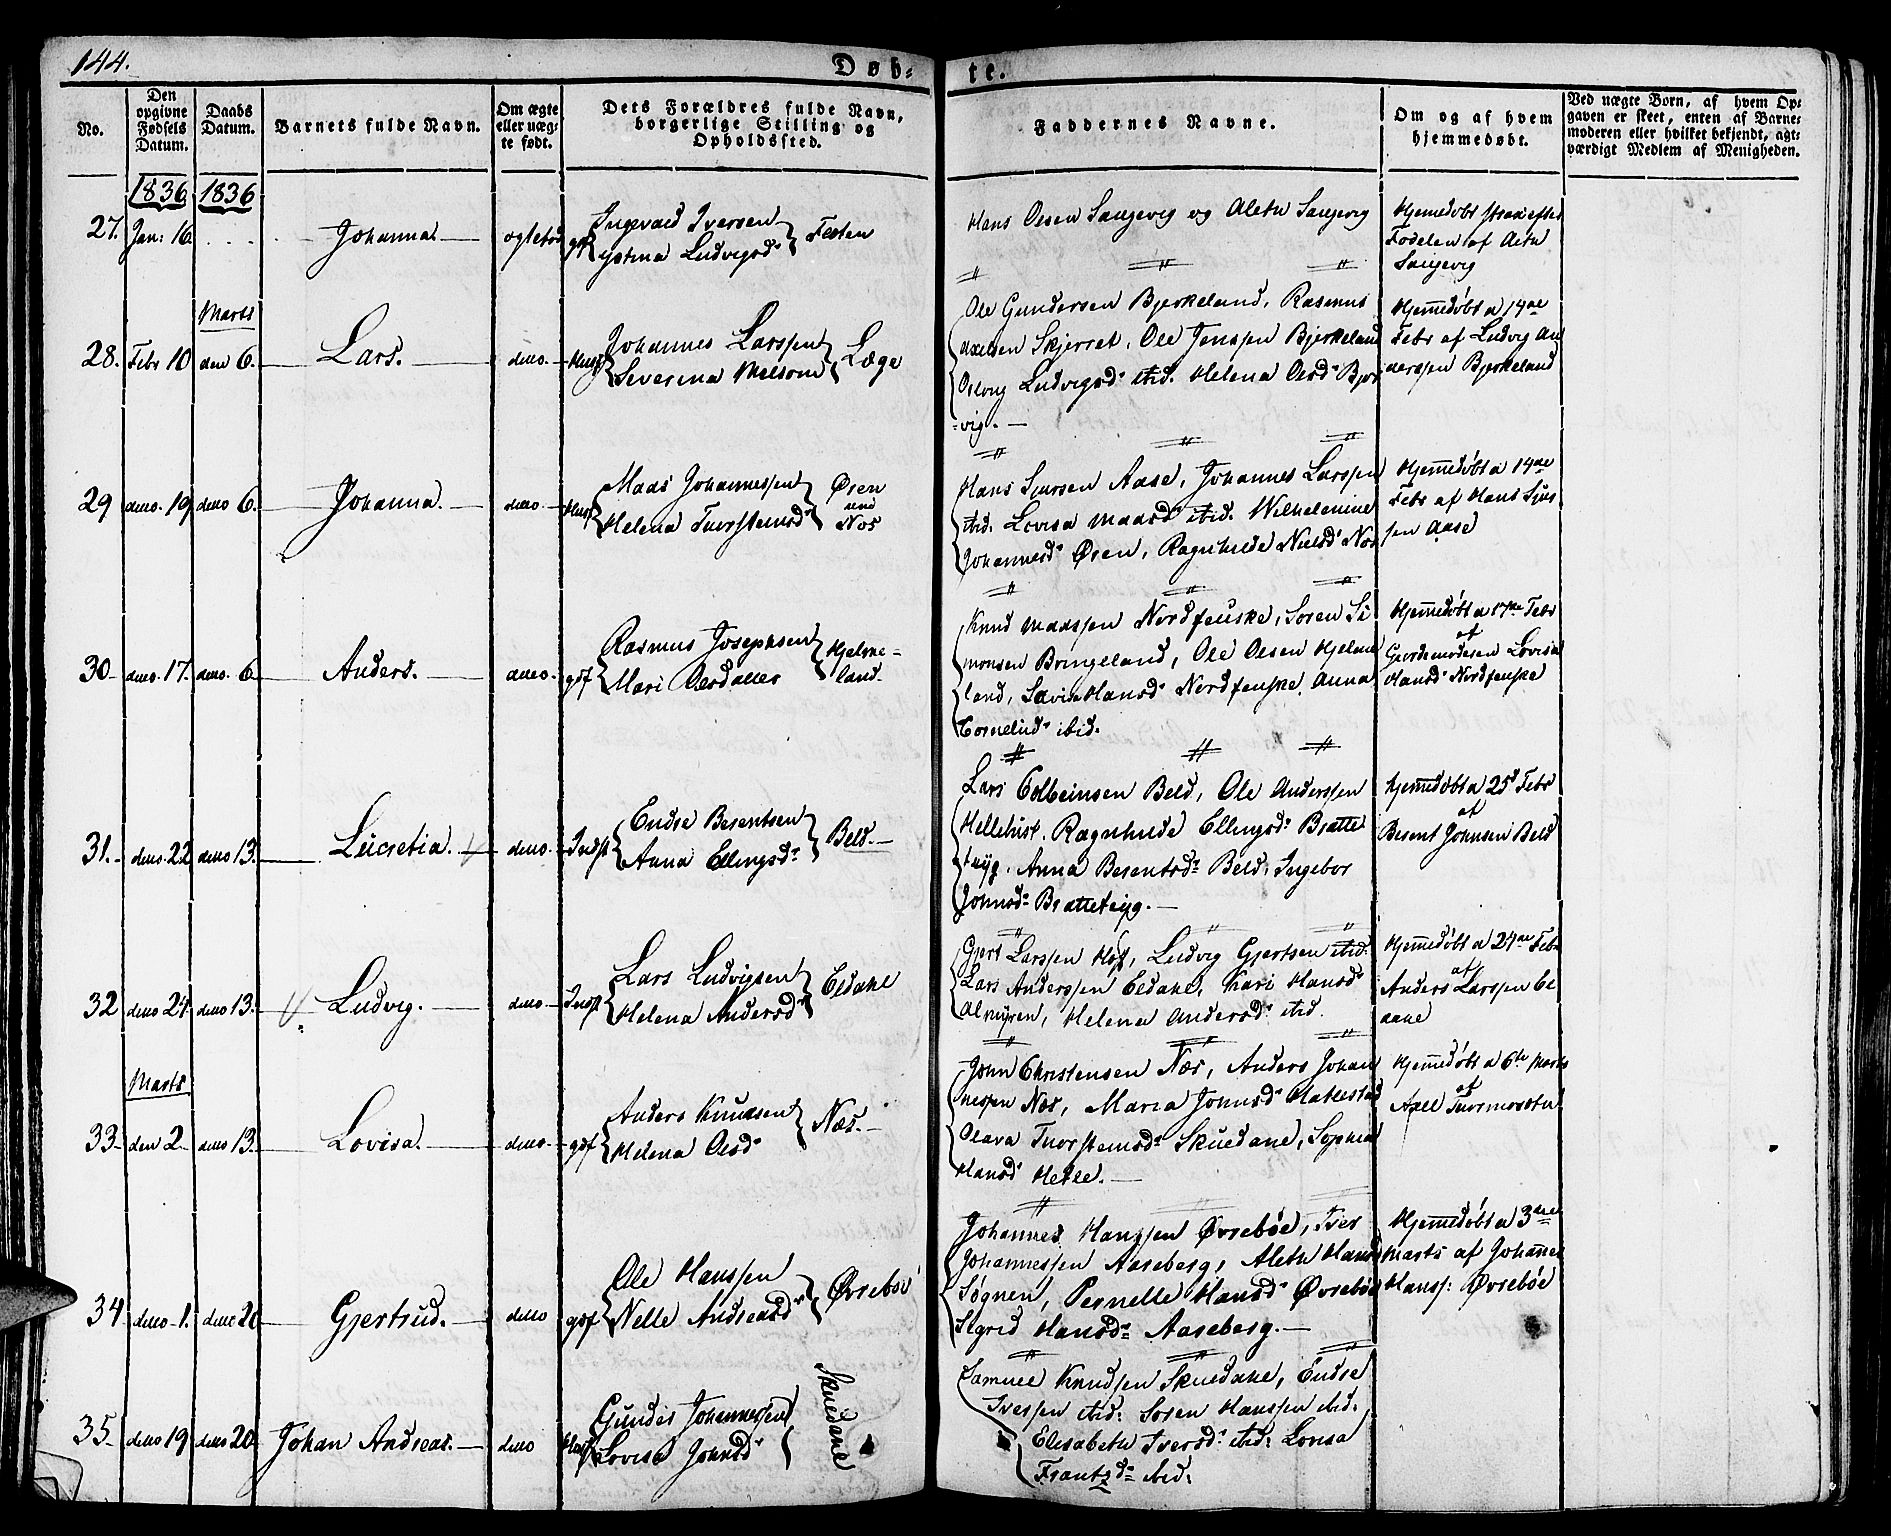 144.
Døb-
te.
No.
Den opgivne Fødsels Datum.
Daabs Datum.
Barnets fulde Navn.
Om ægte eller uægte født.
Dets Forældres fulde Navn, borgerlige Stilling og Opholdssted.
Faddernes Navne.
Om og af hvem hjemmedøbt.
Ved uægte Børn, af hvem Opgaven er skeet, enten af Barnemoderen eller hvilket bekjendt, agtværdigt Medlem af Menigheden.
1836 1836
27. Jan: 16. Johanna.
Iversen
Ludvigsd.
Hans Olsen og
Hjemedøbt strax efter
Fødelen af
Marts
28. Febr 10 den 6. Lars. dito. Huusf
Johannes Larssen
Severina
Læge
Ole Gundersen Bjerkeland, Rasmus
Skjerret, Ole Jenssen Bjerkeland
Ludvigsd. ibid. Helena Olsd.
vig.
Hjemedøbt a 14de
Febr af Ludvig An
derssen Bjerkeland
29 dito. 19 dito 6. Johanna. dito. Huusf
Maas Johannessen
Helena Thorsteinsd.
Øren
Hans Aase, Johannes Larssen
ibid. Lovisa Maasd. ibid. Wilhelmine
Johannesd. Øren, Ragnhilde Nielsd.
Hjemedøbt a 14de
Febr af Hans
sen Aase
30 dito. 17. dito. 6 Anders. dito. gdf
Rasmus Josephsen
Mari Olsdatter
Hjelme-
land.
Knud Maassen Nordfenske, Søren Si
monsen Bringeland, Ole Olsen Hjelme
land, Hansd. Nordfenske, Anna
Cornelisd. ibid.
Hjemmedøbt a 17de Febr
af
Gjordemoderen Lovisa
Hansd. Nordfenske
31. dito. 22 dito 13. Lucretia. dito. Indst
Endre Berentsen
Anna Ellingsd.
Beld.
Lars Colbeinsen Beld, Ole Anderssen
Ragnhilde Ellingsd. Bratte
Anna Berentsd. Beld, Ingebor
Johnsd.
Hjemedøbt a 25d Febr
af
Berent Johnsen Beld
32 dito 24. dito 13. Ludvig. dito Indst
Lars Ludvigsen
Helena Andersd.
Eldahl
Gjert Larssen Hof, Ludvig Gjertsen ibid.
Lars Anderssen Eldahl, Kari Hansd.
Helena Andersd. ibid.
Hjemedøbt a 27de Febr
af
Anders Larssen El
dahl
Marts
33. den 2 dito 13. Lovisa. dito. gdf
Anders Knudsen
Helena Olsd.
Næs.
John Christensen Næs, Anders Johan
nessen Næs, Maria Johnsd. Hatlestad
Olava Thorsteinsd. Skuedahl, Sophia
Hansd. Hetle.
Hjemedøbt a 6te Marts
af
34 dito 1. dito 20 Gjertrud. dito gdf
Ole Hanssen
Nelle Andreasd.
Øvrebøe
Johannes Hanssen Øvrebøe, Iver
Johannessen Aaseberg, Hansd.
Søgnen, Pernelle Hansd. Øvrebøe
Sigrid Hansd. Aaseberg.
Hjemedøbt a 3die
Marts af Johannes
Hanss: Øvrebøe
35. dito 19 dito 20 Johan Andreas. dito Huusf
Johannessen
Lovisa Johnsd.
Skuedahl
Samuel Knudsen Skuedahl, Endre
Iverssen ibid. Søren Hanssen ibid.
Elisabeth Iversd. ibid. Lovisa
Frantzd. ibid.